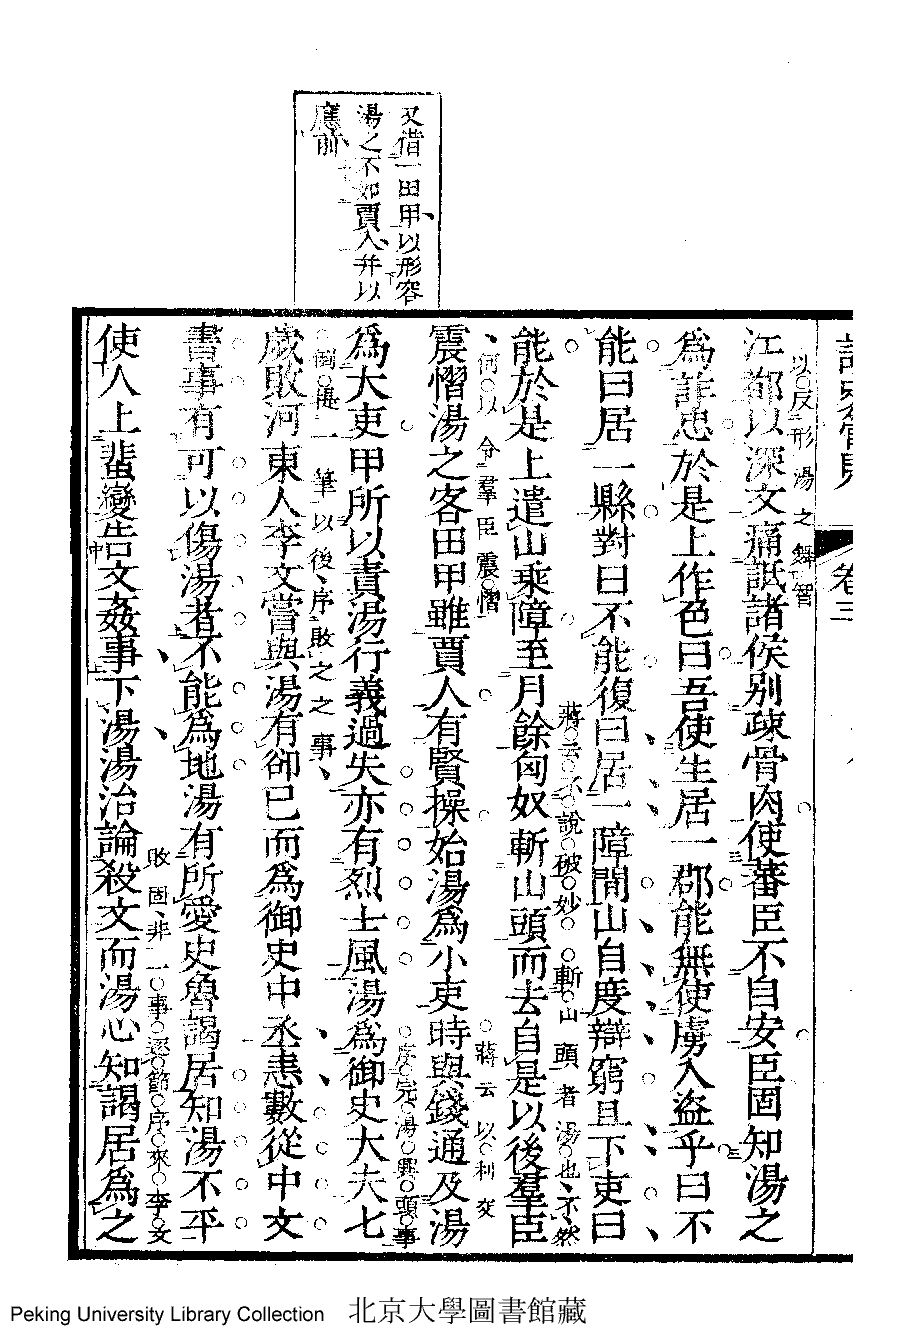 又借一田甲以形容
湯之不如賈人并以
應前
卷三
以反形湯之舞智
江都以深文痛詆諸侯別疎骨肉使蕃臣不自安臣固知湯之
爲詐忠於是上作色曰吾使生居一郡能無使虜入盜乎曰不
能曰居一縣對曰不能復曰居一障閒山自度辯窮且下吏曰
蔣云不說破妙斬山頭者湯也不然
能於是上遣山乘障至月餘匈奴斬山頭而去自是以後羣臣
何以令羣臣震慴
蔣云以利交
震慴湯之客田甲雖賈人有賢操始湯爲小吏時與錢通及湯
序完湯興頭事
爲大吏甲所以責湯行義過失亦有烈士風湯爲御史大夫七
倒捲一筆以後序敗之之事
歲敗河東人李文嘗與湯有卻已而爲御史中丞恚數從中文
書事有可以傷湯者不能爲地湯有所愛史魯謁居知湯不平
敗固非一事逐節序來李文
使人上蜚變告文姦事下湯湯治論殺文而湯心知謁居爲之
Peking University Library Collection 北京大學圖書館藏